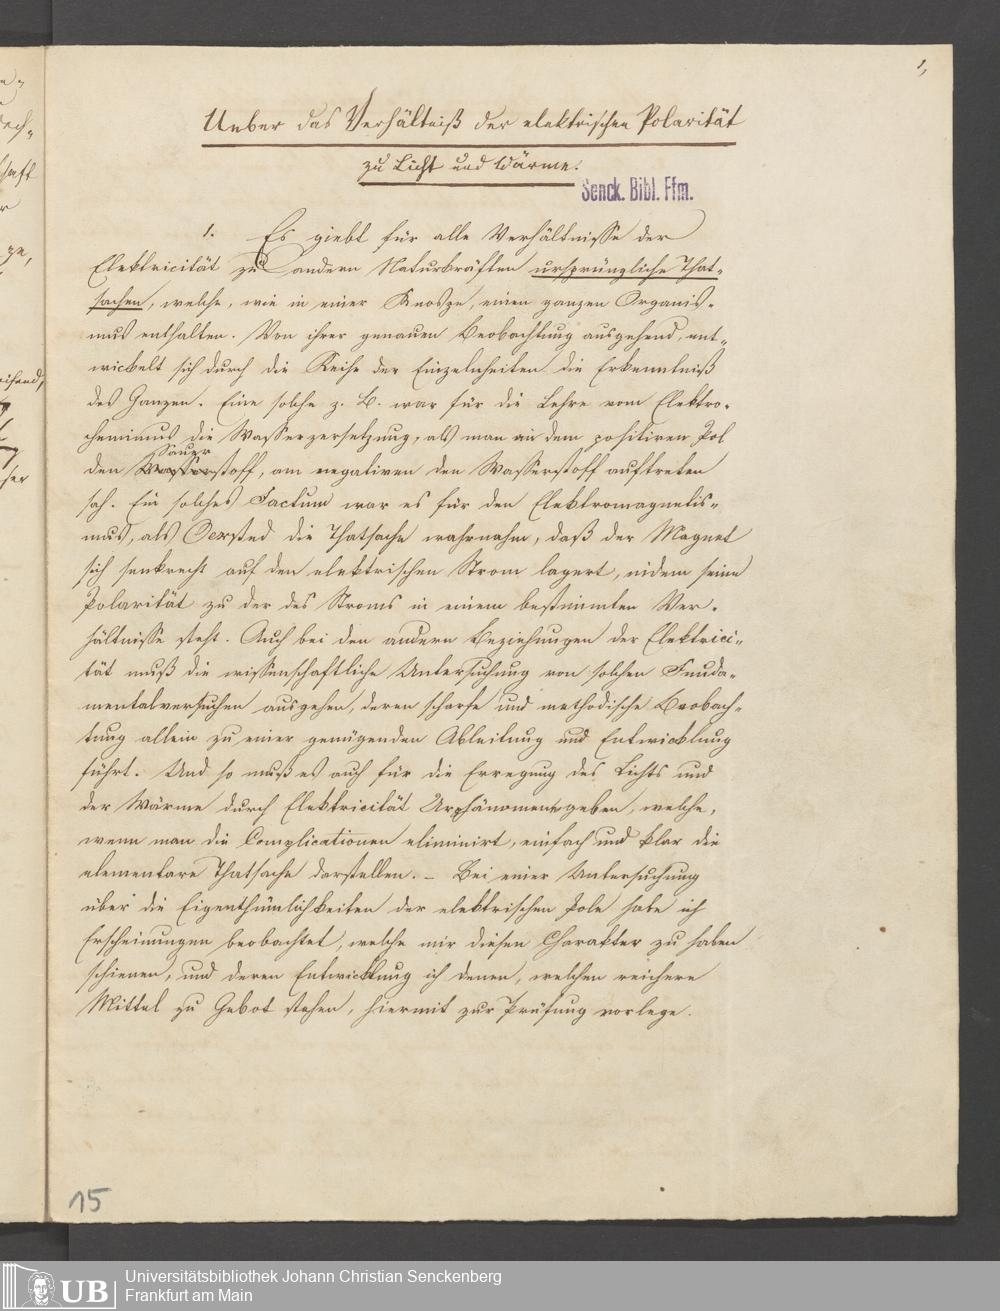 1,
Ueber das Verhältniß der elektrischen Polarität
zu Licht und Wärme.
Senck. Bibl. Ffm.
1. Es giebt für alle Verhältnisse der
Elektricität zu andern Naturkräften ursprüngliche That-
sachen, welche, wie in einer Knospe, einen ganzen Organis-
mus enthalten. Von ihrer genauen Beobachtung ausgehend, ent-
wickelt sich durch die Reihe der Einzelnheiten die Erkenntniß
des Ganzen. Eine solche z. B. war für die Lehre vom Elektro-
chemismus die Wasserzersetzung, als man an dem positiven Pol
Sauer
den Wasserstoff, am negativen den Wasserstoff auftreten
sah. Ein solches Factum war es für den Elektromagnetis-
mus, als Oersted die Thatsache wahrnahm, daß der Magnet
sich senkrecht auf den elektrischen Strom lagert, indem seine
Polarität zu der des Stroms in einem bestimmten Ver-
hältnisse steht. Auch bei den andern Beziehungen der Elektrici-
tät muß die wissenschaftliche Untersuchung von solchen Funda-
mentalversuchen ausgehen, deren scharfe und methodische Beobach-
tung allein zu einer genügenden Ableitung und Entwicklung
führt. Und so muß es auch für die Erregung des Lichts und
der Wärme durch Elektricität Urphänomene geben, welche,
wenn man die Complicationen eliminirt, einfach und klar die
elementare Thatsache darstellen. – Bei einer Untersuchung
über die Eigenthümlichkeiten der elektrischen Pole habe ich
Erscheinungen beobachtet, welche mir diesen Charakter zu haben
schienen, und deren Entwicklung ich denen, welchen reichere
Mittel zu Gebot stehen, hiermit zur Prüfung vorlege.
15
UB
Universitätsbibliothek Johann Christian Senckenberg
Frankfurt am Main